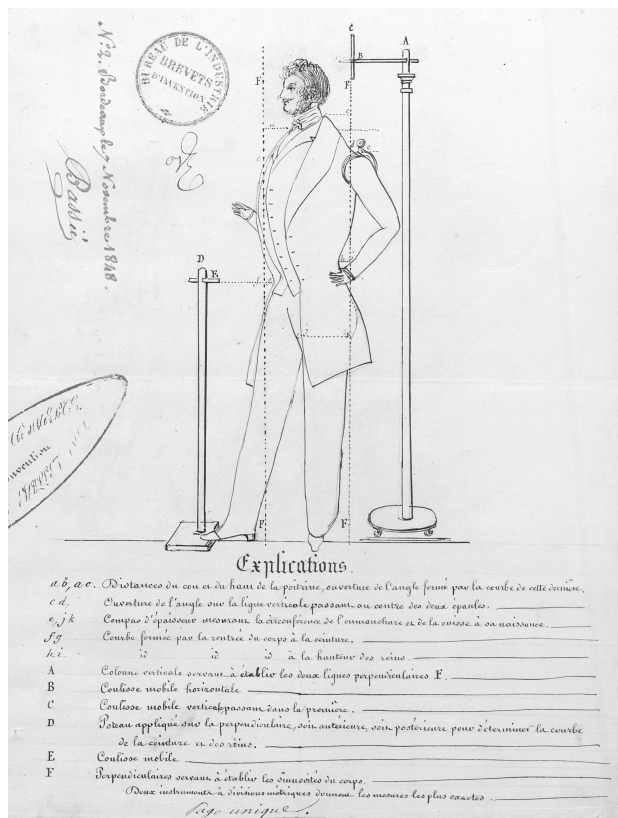 N.º 2. Bordeaux le 7 Novembre 1848.
Bassié
BUREAU DE L'INDUSTRIE
BREVETS
D'INVENTION
C
A
B
F
F
D
E
F
F
Explications.
a b, a c. Distances du cou et du haut de la poitrine, ouverture de l'angle formé par la courbe de cette dernière.
c d. Ouverture de l'angle sur la ligne verticale passant au centre des deux épaules.
e, j k Compas d'épaisseur mesurant la circonférence de l'emmanchure et de la cuisse à sa naissance.
f g Courbe formée par la rentrée du corps à la ceinture.
h i id id id à la hauteur des reins.
A Colonne verticale servant à établir les deux lignes perpendiculaires F.
B Coulisse mobile horizontale
C Coulisse mobile verticale passant dans la première.
D Poteau appliqué sur la perpendiculaire, soit antérieure, soit postérieure pour déterminer la courbe
de la ceinture et des reins.
E Coulisse mobile
F Perpendiculaires servant à établir les sinuosités du corps.
Deux instruments à divisions métriques donnent les mesures les plus exactes.
Page unique.